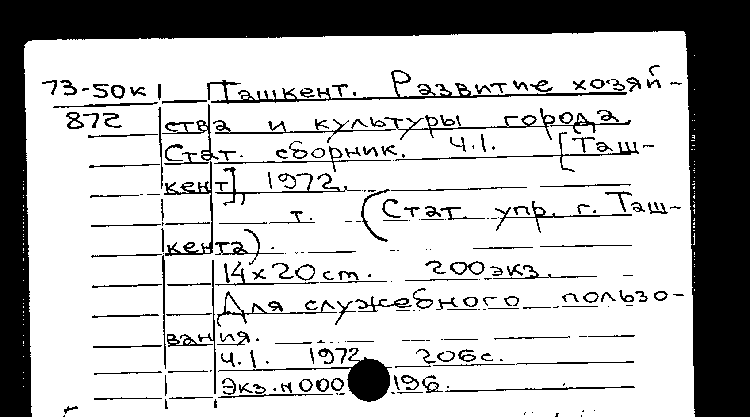 73-50к Ташкент. Развитие хозяй-
872 ства и культуры города.
Стат. сборник. Ч.1. [Таш-
кент], 1972.
т. (Стат. упр. г. Таш-
кента).
14x20 cm. 200 экз.
Для служебного пользо-
вания.
Ч.1. 1972. 206 с.
Экз. N 000196.